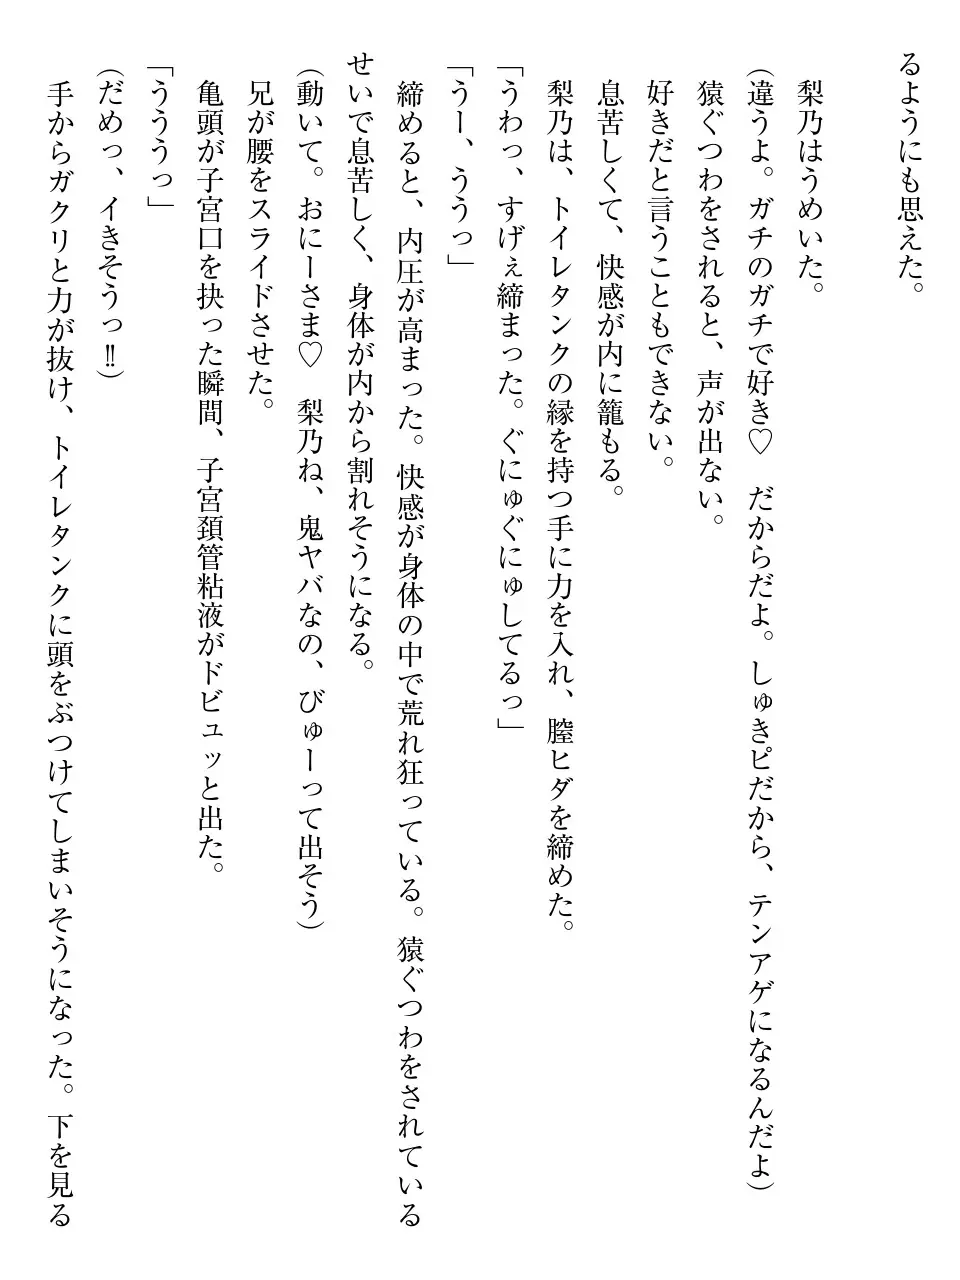 るようにも思えた。
梨乃はうめいた。
(違うよ。ガチのガチで好き♡　だからだよ。しゅきピだから、テンアゲになるんだよ)
猿ぐつわをされると、声が出ない。
好きだと言うこともできない。
息苦しくて、快感が内に籠もる。
梨乃は、トイレタンクの縁を持つ手に力を入れ、膣ヒダを締めた。
「うわっ、すげぇ締まった。ぐにゅぐにゅしてるっ」
「うー、ううっ」
締めると、内圧が高まった。快感が身体の中で荒れ狂っている。猿ぐつわをされている
せいで息苦しく、身体が内から割れそうになる。
(動いて。おにーさま♡　梨乃ね、鬼ヤバなの、びゅーって出そう)
兄が腰をスライドさせた。
亀頭が子宮口を抉った瞬間、子宮頚管粘液がドビュッと出た。
「うううっ」
(だめっ、イきそうっ‼)
手からガクリと力が抜け、トイレタンクに頭をぶつけてしまいそうになった。下を見る